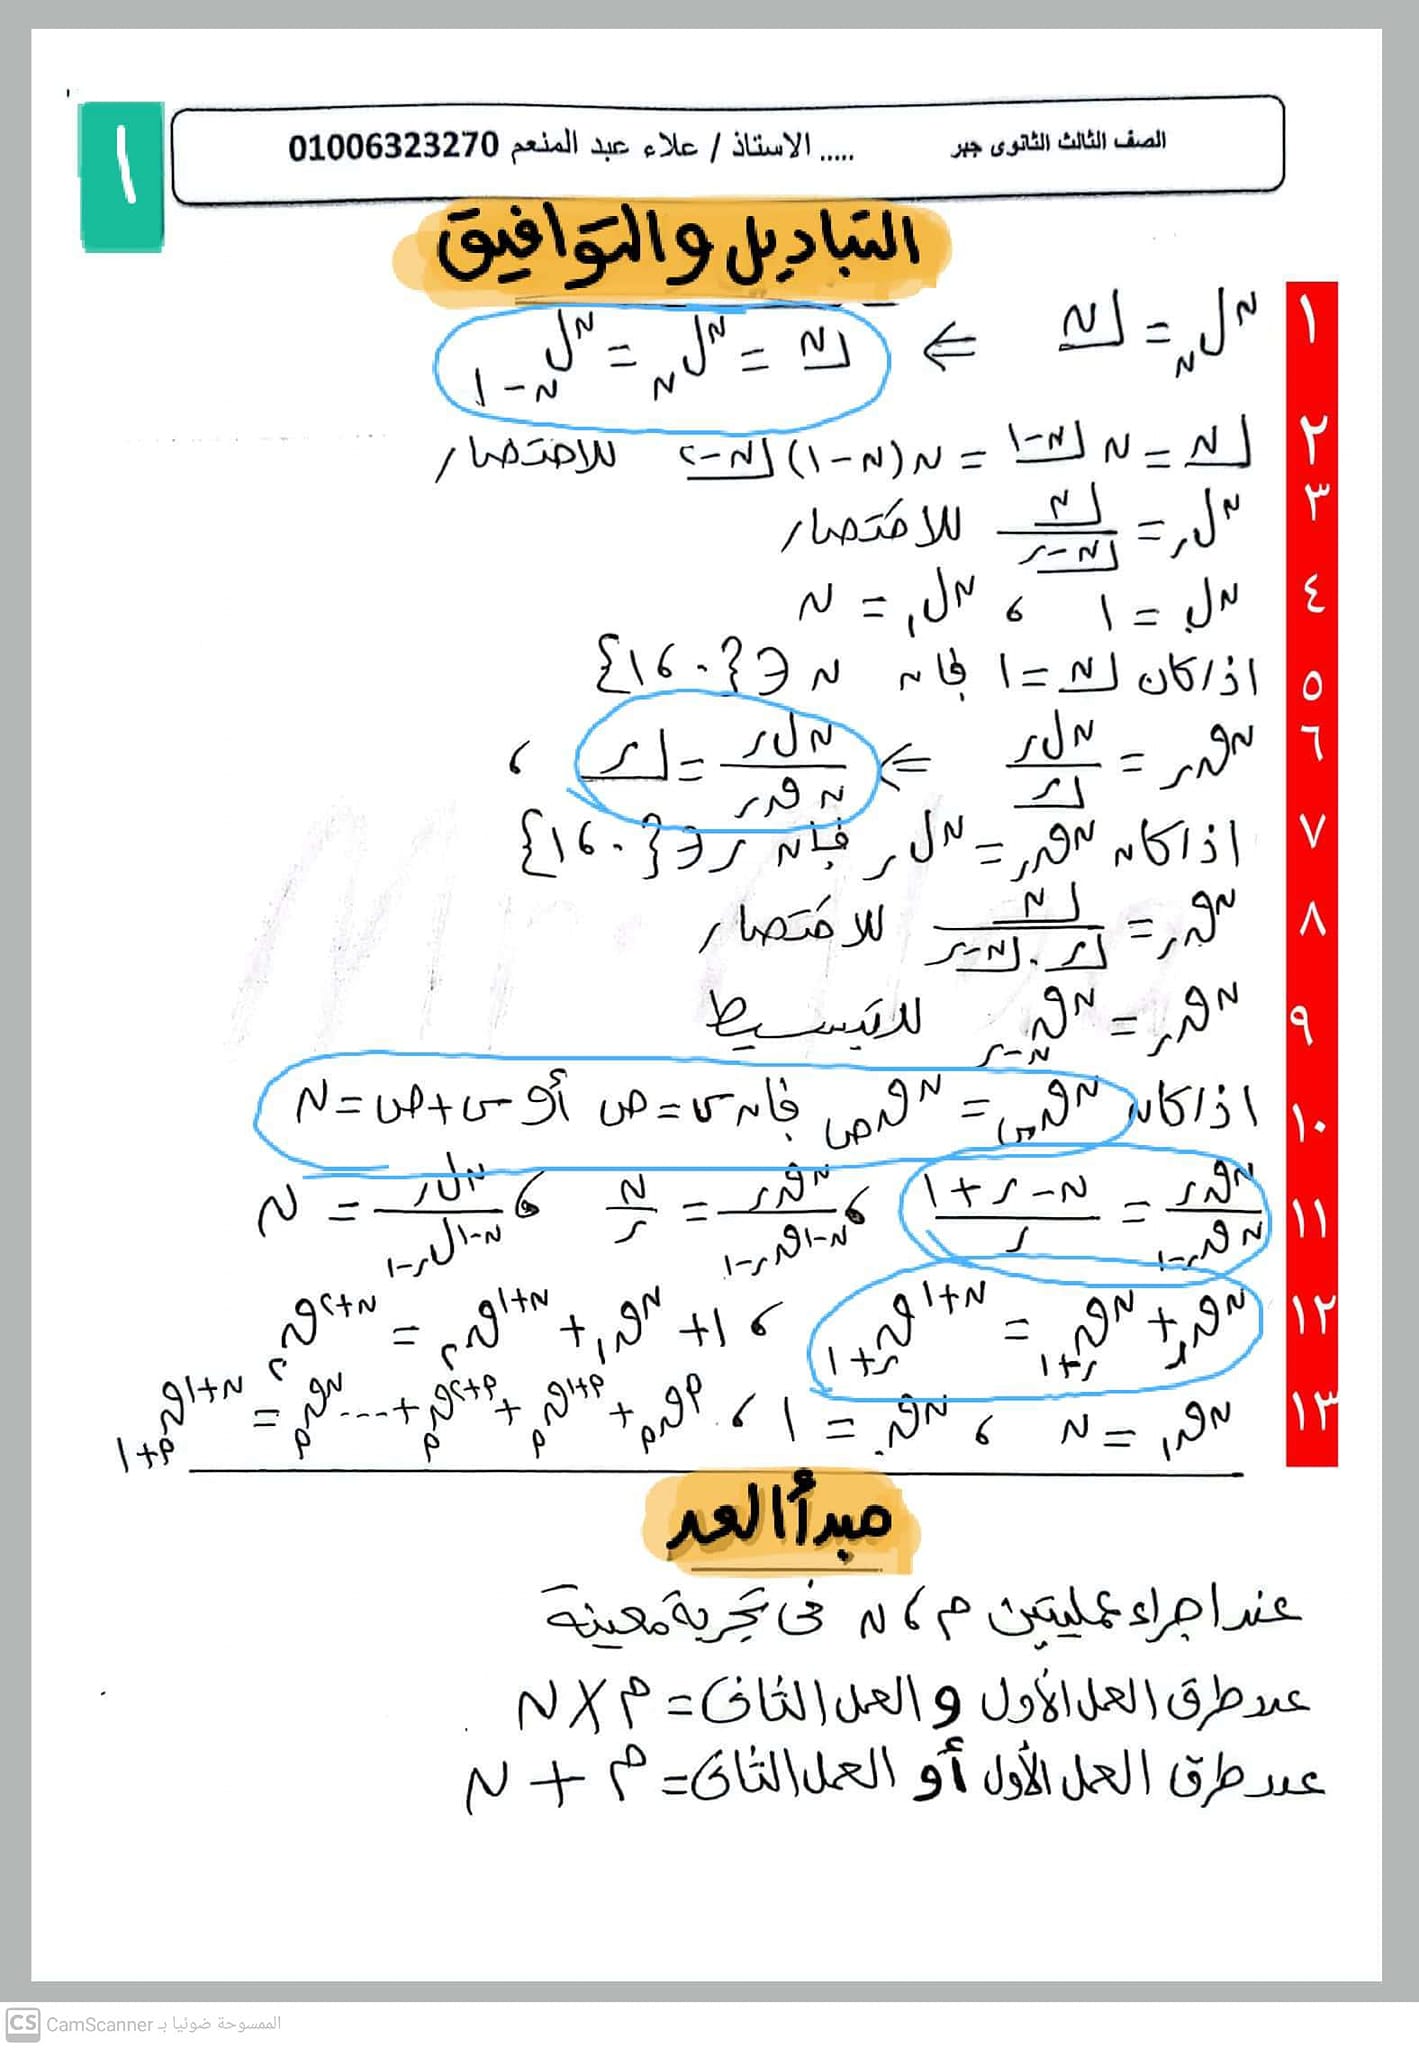 ١
الصف الثالث الثانوى جبر ..... الاستاذ / علاء عبد المنعم 01006323270
التباديل والتوافيق
١ ⁿلₙ = ∟ن ⇐ ∟ن = ⁿلₙ = ⁿلₙ₋₁
٢ ∟ن = ن ∟ن-١ = ن(ن-١) ∟ن-٢ للاختصار
٣ ⁿلᵣ = ∟ن / ∟ن-ر للاختصار
٤ ⁿل. = ١ ، ⁿل₁ = ن
٥ اذا كان ∟ن = ١ فان ن ∈ {٠، ١}
٦ ⁿقᵣ = ⁿلᵣ / ∟ر ⇐ ⁿلᵣ / ⁿقᵣ = ∟ر ،
٧ اذا كان ⁿقᵣ = ⁿلᵣ فإن ر ∈ {٠، ١}
٨ ⁿقᵣ = ∟ن / ∟ر . ∟ن-ر للاختصار
٩ ⁿقᵣ = ⁿق ن-ر للتبسيط
١٠ اذا كان ⁿق س = ⁿق ص فان س = ص أو س + ص = ن
١١ ⁿقᵣ / ⁿق ر-١ = ن - ر + ١ / ر ، ⁿقᵣ / ن-١ق ر-١ = ن / ر ، ⁿلᵣ / ن-١ل ر-١ = ن
١٢ ⁿقᵣ + ⁿق ر+١ = ن+١ق ر+١ ، ١ + ⁿق₁ + ن+١ق₂ = ن+٢ق₂
١٣ ⁿق₁ = ن ، ⁿق. = ١ ، م ق م + م+١ق م + م+٢ق م + ... + ⁿق م = ن+١ق م+١
مبدأ العد
عند اجراء عمليتين م ، ن فى تجربة معينة
عدد طرق العمل الأول و العمل الثانى = م × ن
عدد طرق العمل الأول أو العمل الثانى = م + ن
CS CamScanner الممسوحة ضوئيا بـ